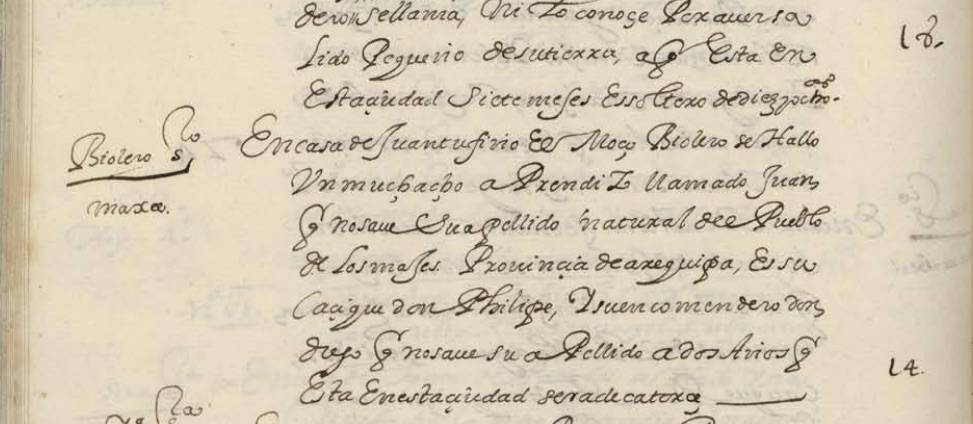 Ni lo conoçe Por aver sa
lido Pequeño de su tierra, a q Esta En
18.
Esta çiudad Siete meses Es soltero de diez y ocho as.
Biolero
En casa de Juan tufiño El Moço Biolero se Hallo
Vn muchacho aPrendiz llamado Juan
q no save Su apellido natural del Pueblo
de Los majes Provinçia de arequipa, Es su
Caçique don Philipe, Y su encomendero don
diego q no save su aPellido a dos Años q
14.
Esta En esta çiudad sera de catorçe